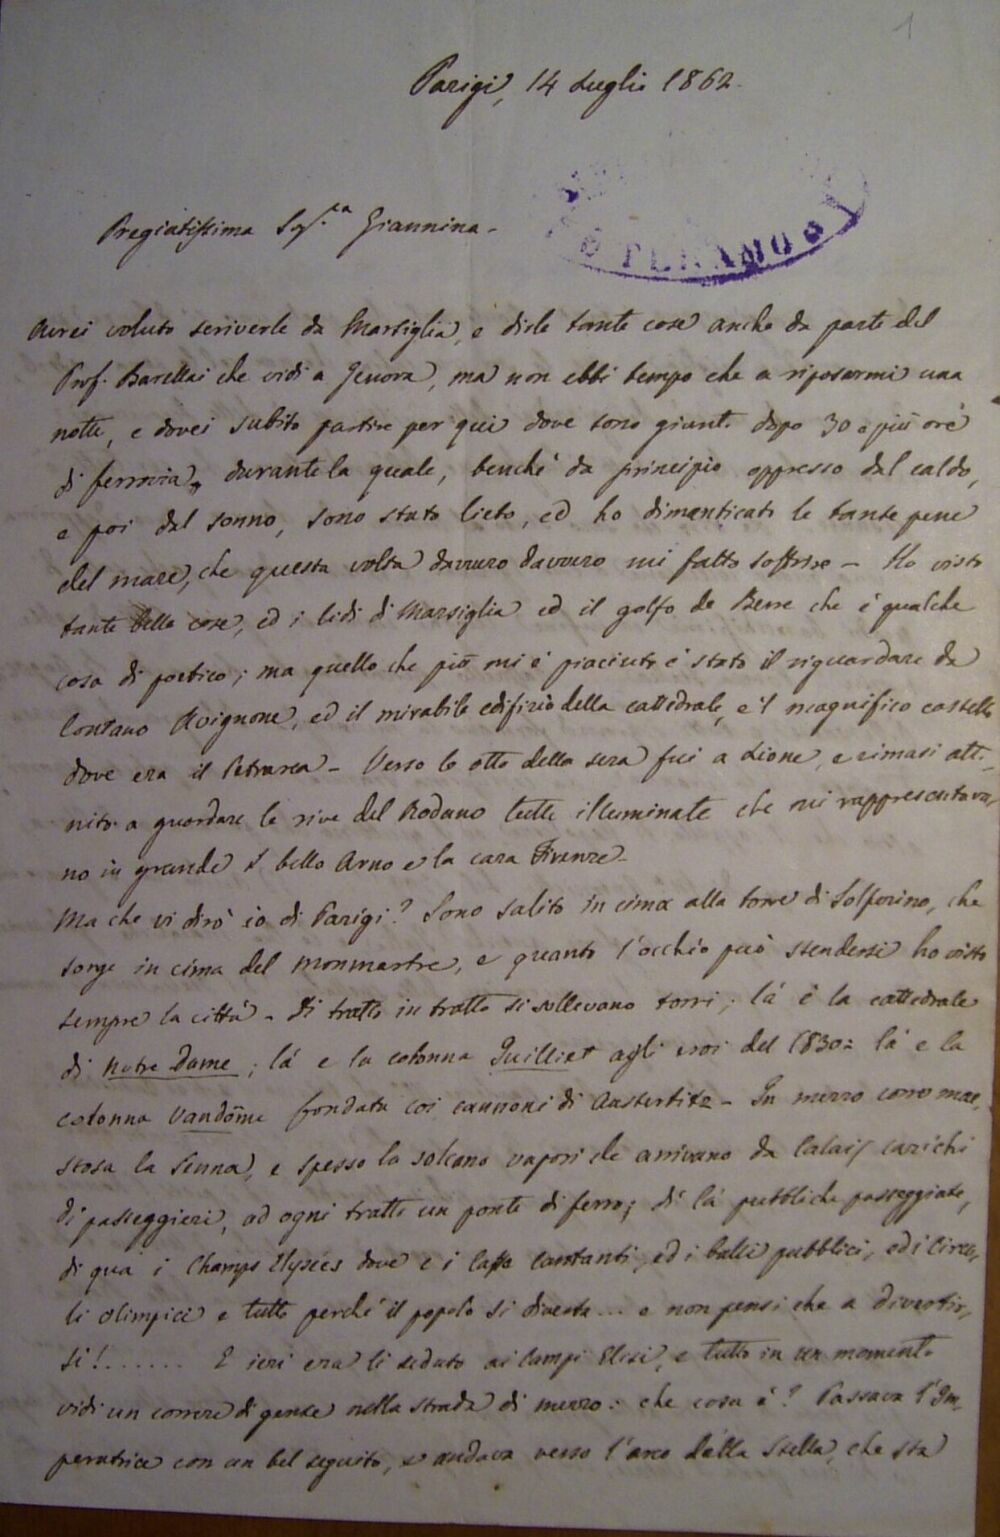 1
Parigi, 14 Luglio 1862.
TERAMO
Pregiatissima Sigr.a Giannina -
Avrei voluto scriverle da Marsiglia, e dirle tante cose anche da parte del
Prof. Barellai che vidi a Genova, ma non ebbi tempo che a riposarmi una
notte, e dovei subito partire per qui dove sono giunto dopo 30 e più ore
di ferrovia, durante la quale, benchè da principio oppresso dal caldo,
e poi dal sonno, sono stato lieto, ed ho dimenticato le tante pene
del mare, che questa volta davvero davvero mi fatto soffrire - Ho visto
tante belle cose, ed i lidi di Marsiglia ed il golfo de Berre che è qualche
cosa di poetico; ma quello che più mi è piaciuto è stato il riguardare da
lontano Avignone, ed il mirabile edifizio della cattedrale, e 'l magnifico castello
dove era il Petrarca - Verso le otto della sera fui a Lione, e rimasi atto-
nito a guardare le rive del Rodano tutte illuminate che mi rappresentava-
no in grande l bello Arno e la cara Firenze -
Ma che vi dirò io di Parigi? Sono salito in cima alla torre di Solferino, che
sorge in cima del Monmartre, e quanto l'occhio può stendersi ho visto
sempre la città - Di tratto in tratto si sollevano torri; là è la cattedrale
di Notre Dame; là e la colonna Juilliet agli eroi del 1830: là e la
colonna Vandôme fondata coi cannoni di Austerlitz - In mezzo corre mae-
stosa la Senna, e spesso la solcano vapori che arrivano da Calais carichi
di passeggieri, ad ogni tratto un ponte di ferro; di là pubbliche passeggiate,
di qua i Champs Elysées dove e i Caffe Cantanti, ed i balli pubblici, ed i Circo-
li Olimpici e tutto perchè il popolo si diverta ... e non pensi che a divertir-
si! ...... E ieri era lì seduto ai Campi Elisi, e tutto in un momento
vidi un correre di gente nella strada di mezzo: che cosa è? Passava l'Im-
peratrice con un bel seguito, e andava verso l'arco della Stella, che sta